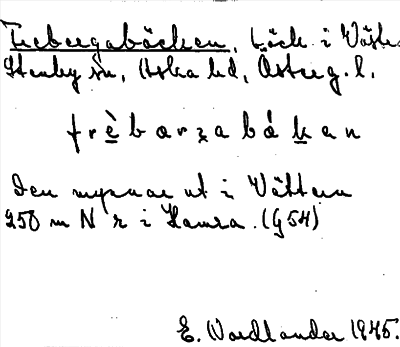 Frebergabäcken, bäck i Väster
Stenby sn, Aska hd, Österg. l.
frèbarzabákan
Den mynnar ut i Vättern
250 m N r i Hamra. (G 54)
E. Nordlander 1945.